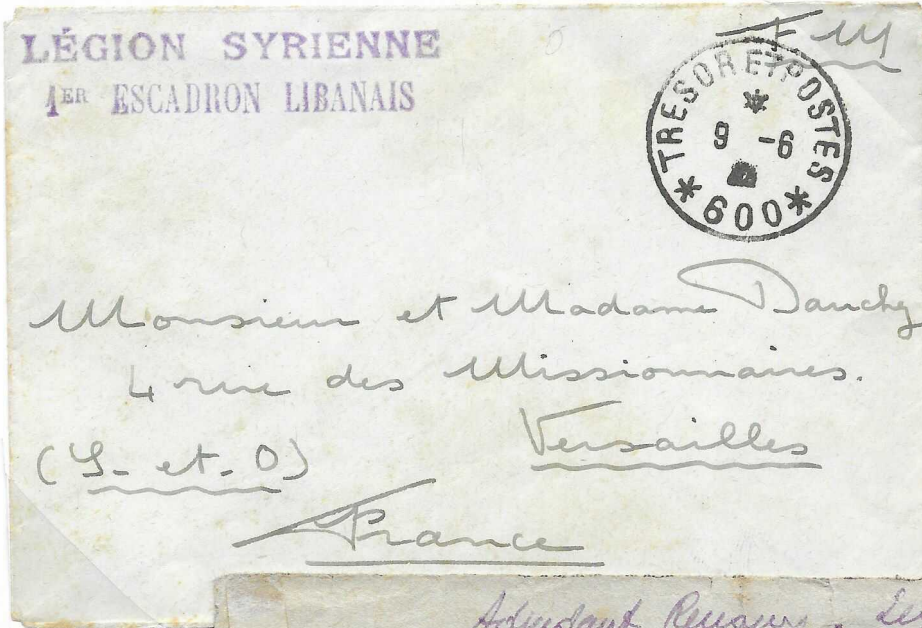 LÉGION SYRIENNE
1ER ESCADRON LIBANAIS
F M
TRESOR ET POSTES
9 -6
* 600 *
Monsieur et Madame Dauchy
4 rue des Missionnaires.
Versailles
(S-et-O)
France